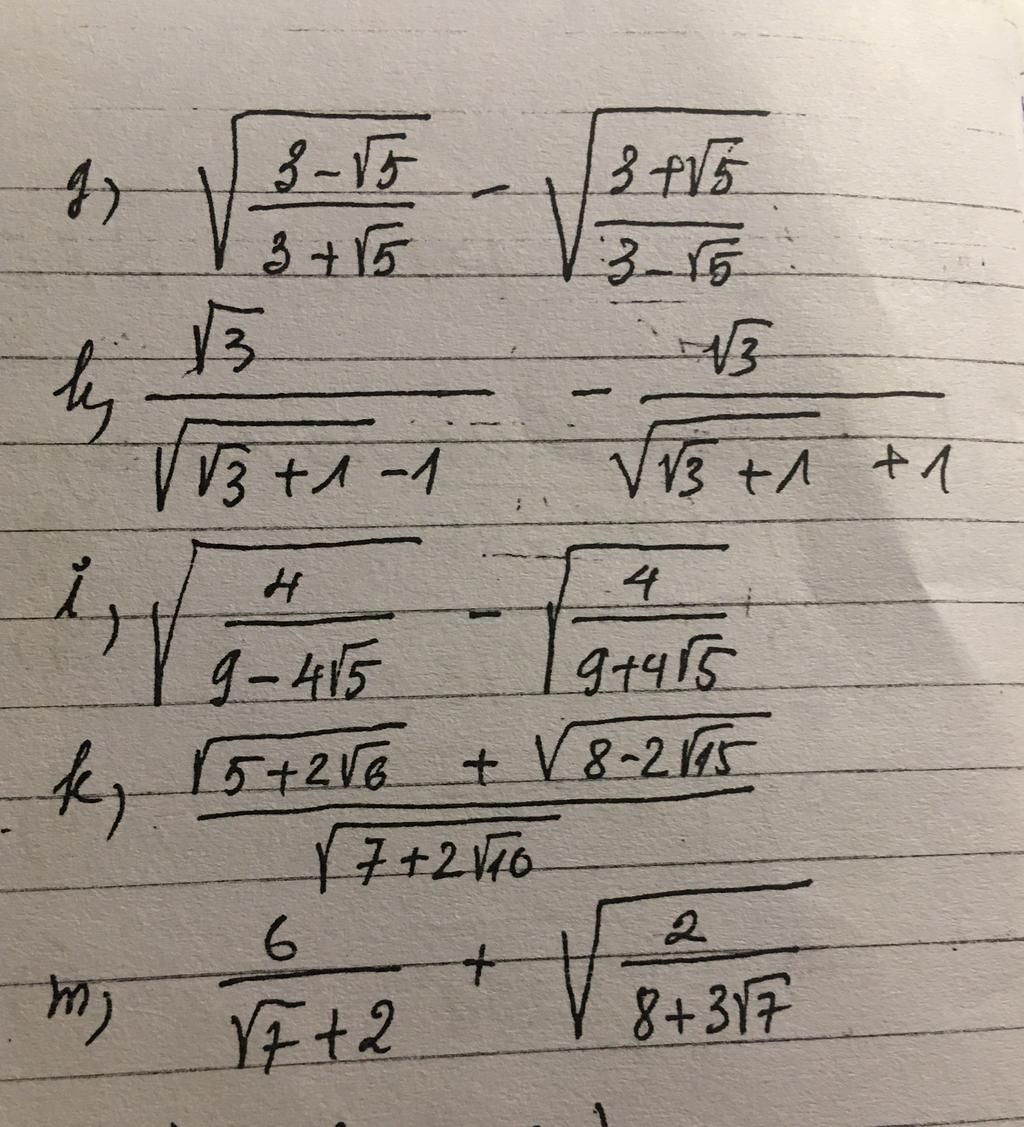 g) √((3-√5)/(3+√5)) - √((3+√5)/(3-√5))
h, √3/(√(√3+1) -1) - √3/(√(√3+1) +1)
i, √(4/(9-4√5)) - √(4/(9+4√5))
k, (√(5+2√6) + √(8-2√15))/√(7+2√10)
m, 6/(√7+2) + √(2/(8+3√7))